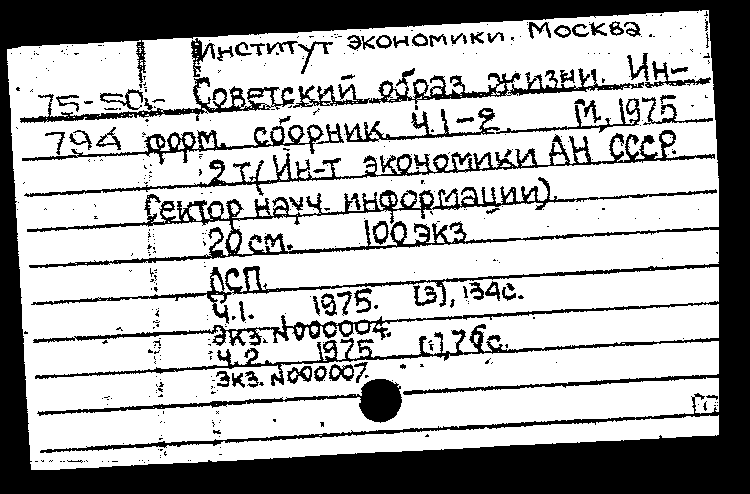 Институт экономики. Москва.
75-50.- Советский образ жизни. Ин-
794 форм. сборник. Ч.1-2. М., 1975
2 т. (Ин-т экономики АН СССР.
Сектор науч. информации).
20 см. 100 экз
ДСП.
Ч.1. 1975. [3], 134с.
Экз. N000004.
Ч.2. 1975. [1], 76с.
Экз. N000007.